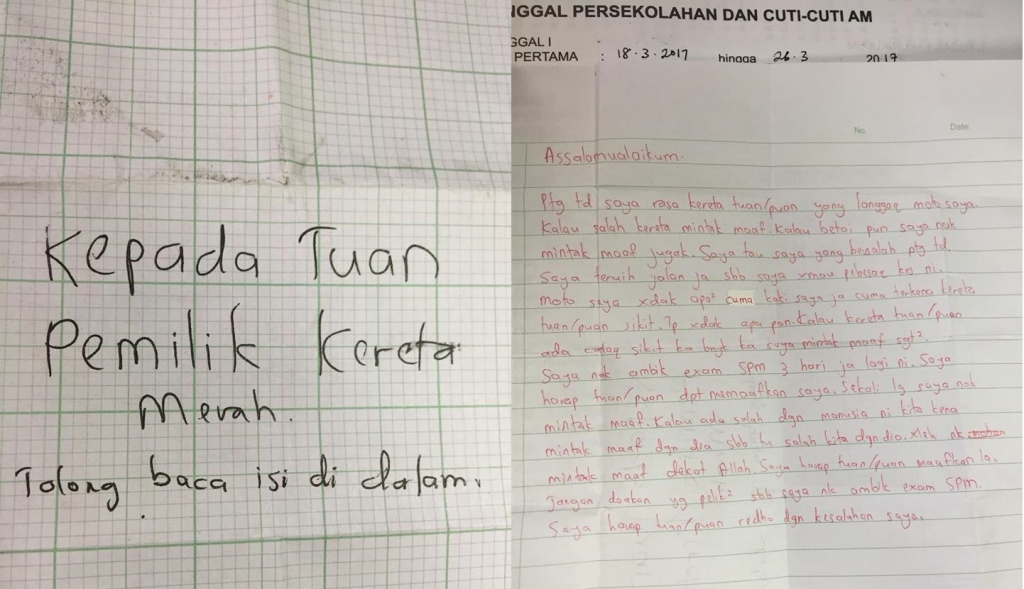 Kepada Tuan
Pemilik Kereta
Merah.
Tolong baca isi di dalam.
NGGAL PERSEKOLAHAN DAN CUTI-CUTI AM
GGAL I
PERTAMA : 18.3.2017 hingga 26.3 2017
No. Date
Assalamualaikum.
Ptg td saya rasa kereta tuan/puan yang langgaq moto saya.
Kalau salah kereta mintak maaf. Kalau betoi pun saya nak
mintak maaf jugak. Saya tau saya yang bersalah ptg td
Saya teruih jalan ja sbb saya xmau pebesaq kes ni.
Moto saya xdak apa² cuma kaki saya ja cuma terkena kereta
tuan/puan sikit. Tp xdak apa pon. Kalau kereta tuan/puan
ada calaq sikit ka bnyk ka saya mintak maaf sgt².
Saya nak ambik exam SPM 3 hari ja lagi ni. Saya
harap tuan/puan dpt memaafkan saya. Sekali lg saya nak
mintak maaf. Kalau ada salah dgn manusia ni kita kena
mintak maaf dgn dia sbb tu salah kita dgn dia. xleh nk
mintak maaf dekat Allah. Saya harap tuan/puan maafkan la.
Jangan doakan yg pelik² sbb saya nk ambik exam SPM.
Saya harap tuan/puan redho dgn kesalahan saya.